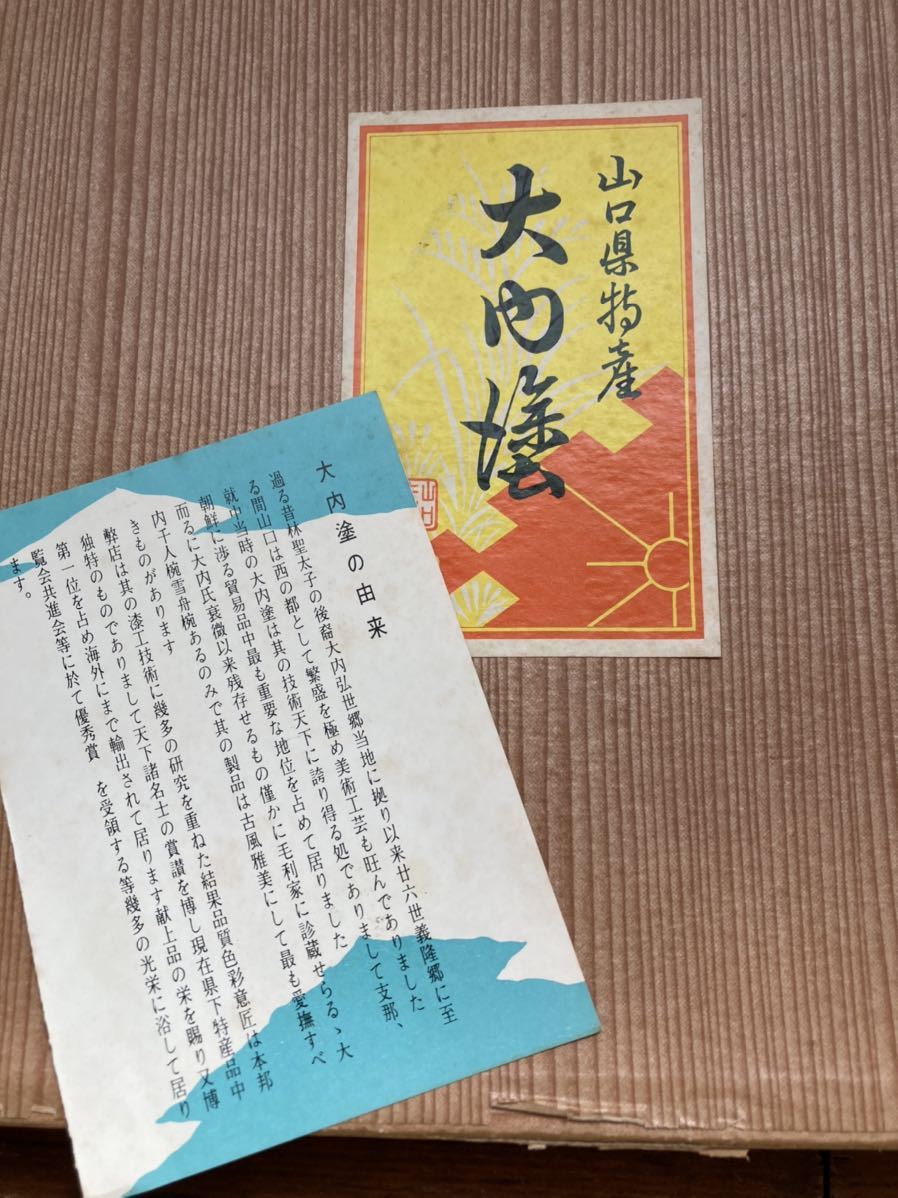 山口県特産
大内塗
山口
大内塗の由来
過る昔林聖太子の後裔大内弘世郷当地に拠り以来廿六世義隆郷に至
る間山口は西の都として繁盛を極め美術工芸も旺んでありました
就中当時の大内塗は其の技術天下に誇り得る処でありまして支那、
朝鮮に渉る貿易品中最も重要な地位を占めて居りました
而るに大内氏衰微以来残存せるもの僅かに毛利家に診蔵せらるゝ大
内千人椀雪舟椀あるのみで其の製品は古風雅美にして最も愛撫すべ
きものがあります
弊店は其の漆工技術に幾多の研究を重ねた結果品質色彩意匠は本邦
独特のものでありまして天下諸名士の賞讃を博し現在県下特産品中
第一位を占め海外にまで輸出されて居ります献上品の栄を賜り又博
覧会共進会等に於て優秀賞 を受領する等幾多の光栄に浴して居り
ます。